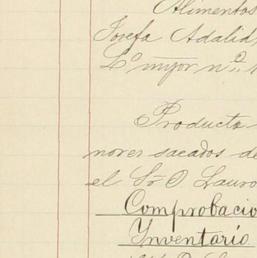 Alimentos
Josefa Adalid
Lº myor nº.
Producto
nores sacados de
el Sr. D. Lauro
Comprobacio
Inventario